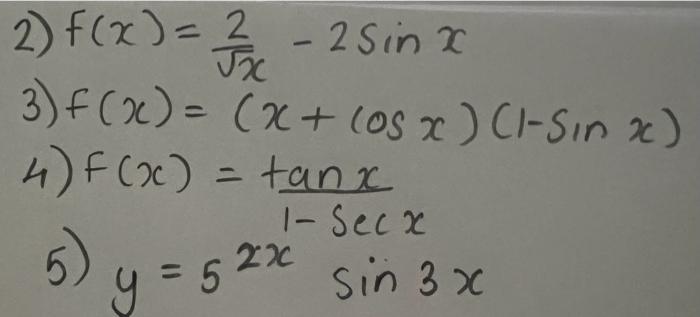 2) f(x) = 2/√x - 2 sin x
3) f(x) = (x + cos x) (1 - sin x)
4) f(x) = tan x / 1 - sec x
5) y = 5^2x sin 3x